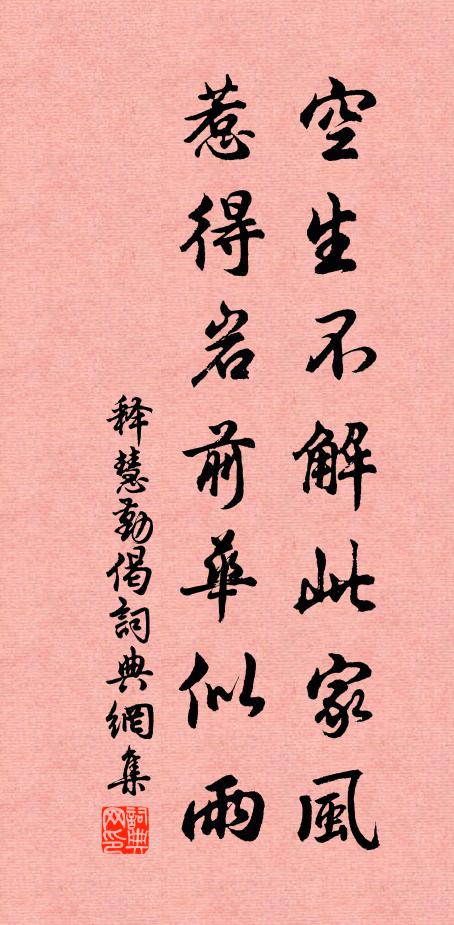 空生不解此家风
惹得岩前华似雨
释慧勤偈詞典網集
詞典网印